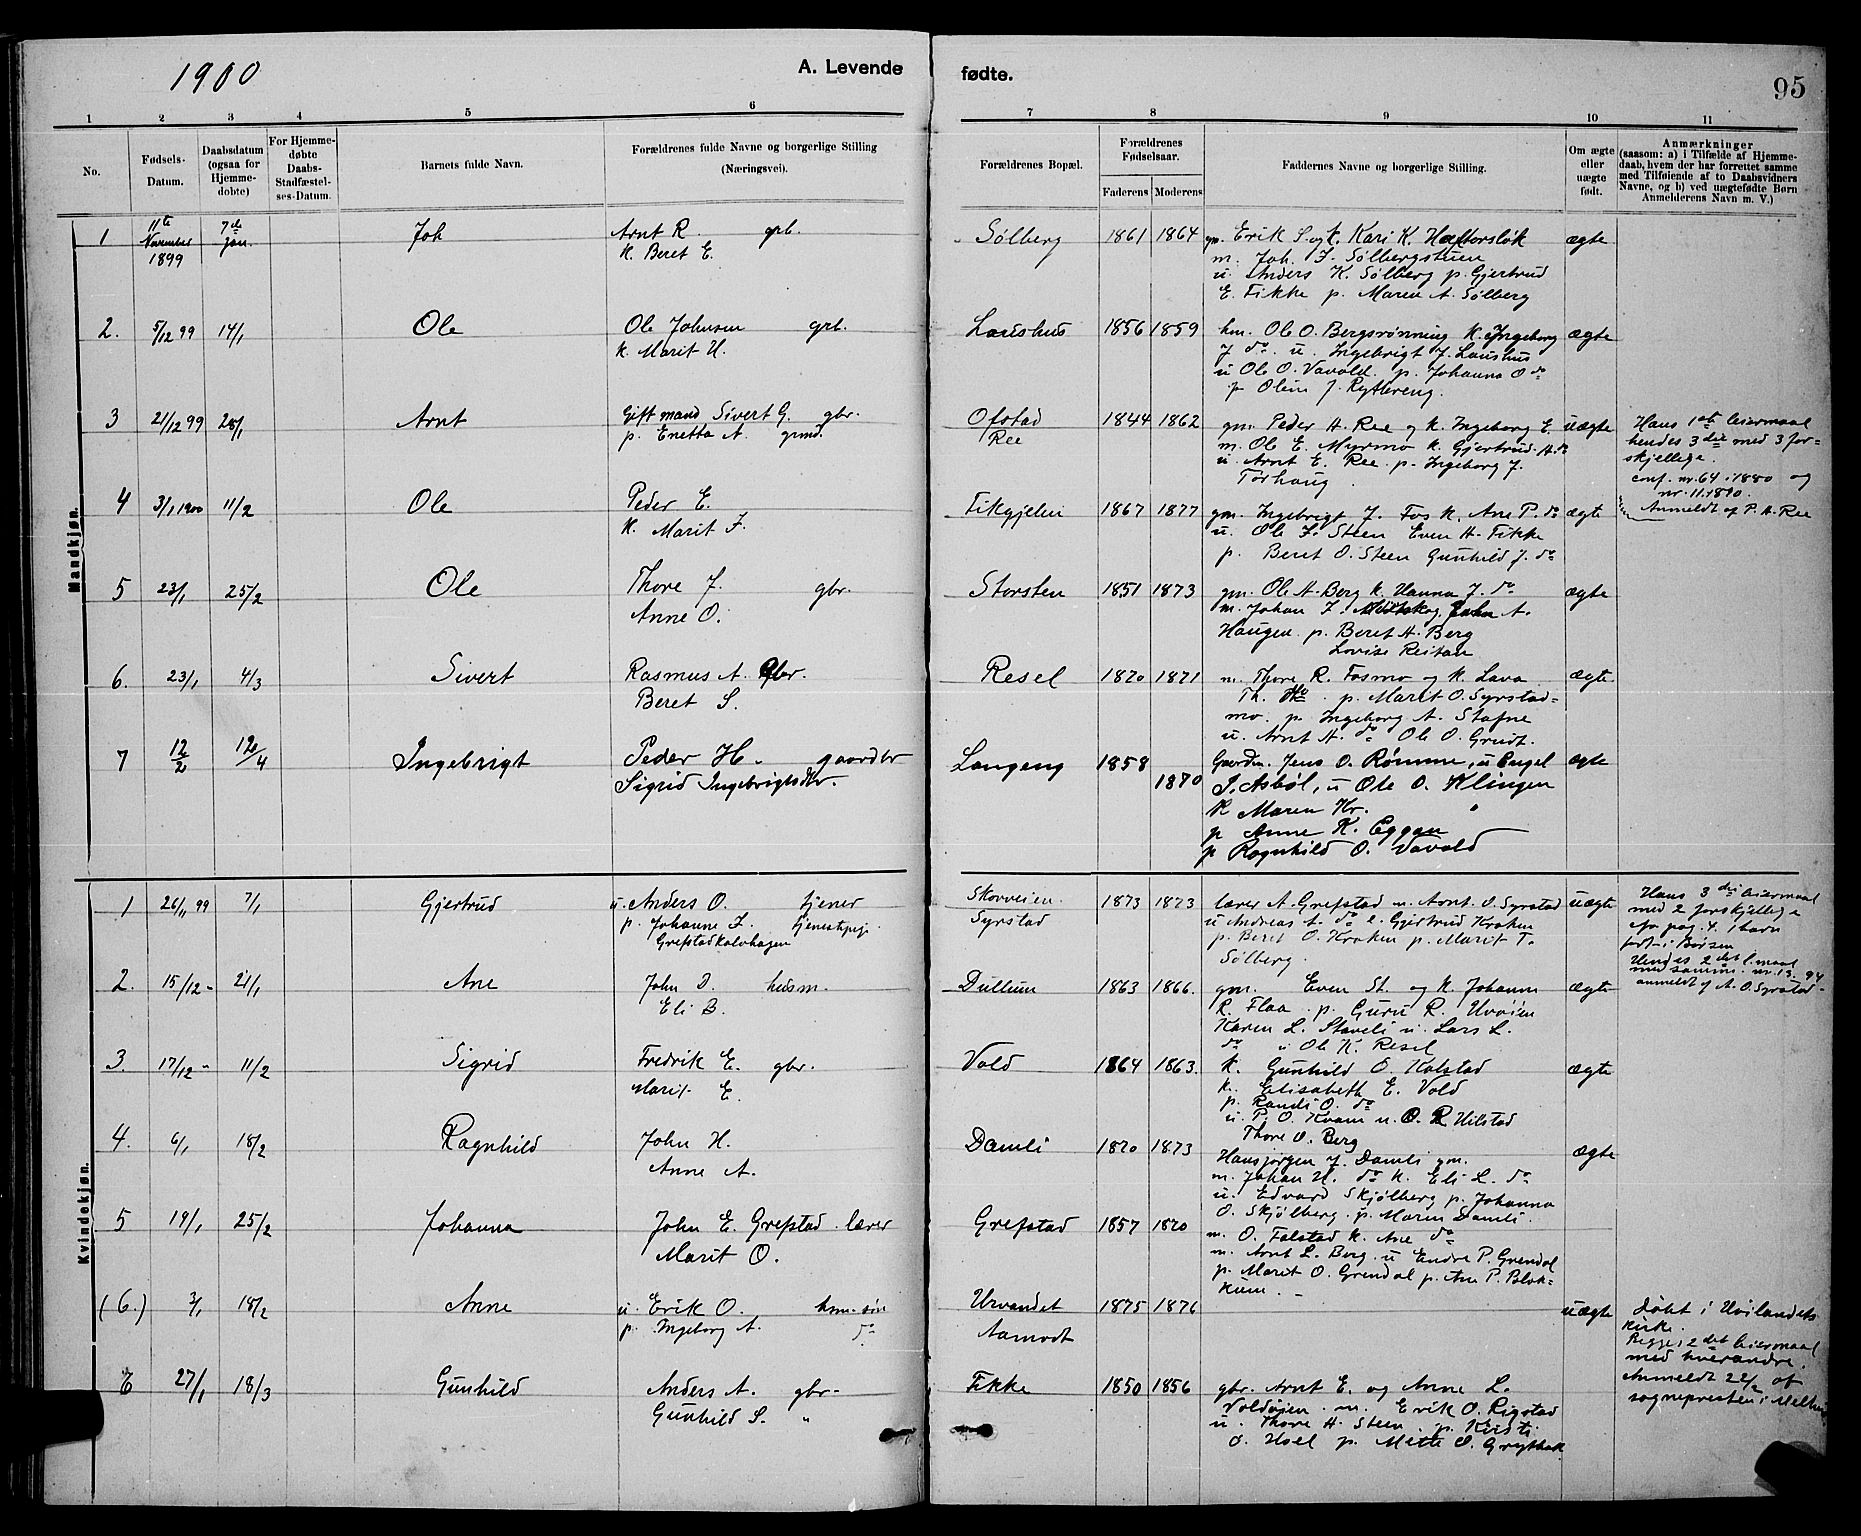 1900
A. Levende fødte.
95
1 2 3 4 5 6 7 8 9 10 11
No.
Fødsels-Datum.
Daabsdatum (ogsaa for Hjemme-døbte)
For Hjemme-døbte Daabs-Stadfæstel-ses-Datum.
Barnets fulde Navn.
Forældrenes fulde Navne og borgerlige Stilling (Næringsvei).
Forældrenes Bopæl.
Forældrenes Fødselsaar.
Faderens Moderens
Faddernes Navne og borgerlige Stilling.
Om ægte eller uægte født.
Anmærkninger
(saasom: a) i Tilfælde af Hjemme-
daab, hvem der har forrettet samme
med Tilføiende af to Daabsvidners
Navne, og b) ved uægtefødte Børn
Anmelderens Navn m. V.)
Mandkjøn.
1 11te November 1899 7de Jan. Joh Arnt R. grb. Sølberg 1861 1864 gm. Erik S og k. Kari K. Haftorsløk ægte
k. Beret E. m. Joh. J. Sølbergstuen
u. Anders K. Sølberg p. Gjertrud
E. Fikke p. Maren A. Sølberg
2. 5/12 99 14/1 Ole Ole Johnsen grb. Laushus 1856 1859 hm. Ole O. Bergsrønning k. Ingeborg ægte
k. Marit H. J do. u. Ingebrigt J. Laushus
u Ole O. Vavold. p. Johanna O do
p. Oline J. Rytlereng.
3 21/12 99 28/1 Arnt Gift mand Sivert G. gbr. Ofstad 1844 1862 gm. Peder H. Ree og k. Ingeborg E. uægte Hans 1ste leiermaal
p. Enetta A. grmd. Ree m. Ole E. Myrmo k. Gjertrud A. do hendes 3die med 3 for-
u. Arnt E. Ree p. Ingeborg J. skjellige.
Torhaug. conf. nr. 64 i 1880 og
nr. 11. 1890.
Anmeldt af P. H. Ree
4 3/1 1900 11/2 Ole Peder E. Fikgjelen 1867 1877 gm. Ingebrigt J. Fos k. Ane P. do ægte
k. Marit J. u. Ole J. Steen Even H. Fikke
p. Beret O. Steen Gunhild J. do
5 23/1 25/2 Ole Thore J. gbr. Storsten 1851 1873 gm. Ole A. Berg k. Hanna J. do ægte
Anne O. m. Johan J. John A.
Haugen. p. Beret H. Berg
Lovise Reitan
6. 23/1 4/3 Sivert Rasmus A. Gbr. Resel 1870 1871 m. Thore R. Fosmo og k. Lava ægte
Beret S. Th. do. p. Marit O. Syrstad-
mo. p. Ingeborg A. Stafne
u. Arnt H. do Ole O. Grudt.
7 12/2 16/4 Ingebrigt Peder H. gaardbr Langeng 1858 Gaardm. Jens O. Rømme, u Engel ægte
Sigrid Ingebrigtsdtr. 1870 J. Asbøl, u Ole O. Klingen
k Maren Hr. "
p Anne K. Eggan
p Ragnhild O. Vavold
Kvindekjøn.
1 26/11 99 7/1 Gjertrud u. Anders O. tjener Skovveien 1873 1873 lærer A. Grefstad m. Arnt O. Syrstad uægte Hans 3die leiermaal
p. Johanne J. tjenestpige Syrstad u Andreas A. do e. Gjertrud Kroken med 2 forskjellige
Grefstadkalvhagen p. Beret O. Kroken p. Marit T. cfr. pag. 4. 1 barn
Sølberg. født i Børsen
Hendes 2det l.maal
med samme. nr. 13. 94
anmeldt af A. O. Syrstad
2. 15/12 - 21/1 Ane John D. husm. Dullum 1863 1866. gm. Even St. og k. Johanne ægte
Eli B. R. Flaa p. Guru R. Uvøien
Karen L. Staveli u. Lars L.
do u Ole K. Resel
3. 17/12 - 11/2 Sigrid Fredrik E. gbr. Vold 1864 1863. k. Gunhild O. Kalstad ægte
Marit E. k. Elisabeth E. Vold
p. Randi O. do
u. P. O. Kvam u. O. R Uilstad
Thore O. Berg
4. 6/1 18/2 Ragnhild John H. Damli 1870 1873 Hansjørgen J. Damli gm. ægte
Anne A. m. Johan H. do k. Eli L. do
u. Edvard Skjølberg p. Johanna
O. Skjølberg. p. Maren Damli.
5 19/1 25/2 Johanna John E. Grefstad lærer Grefstad 1857 1870 m. O. Falstad k. Ane do
Marit O. m. Arnt L. Berg u Endre P. Grendal
p. Marit O. Grendal p. Ane P. Blok-
kum.
(6.) 3/1 18/2 Anne u. Erik O. hsm. søn Urvandet 1875 1876 uægte Døbt i Hølandets
p. Ingeborg A. do Aamodt kirke.
Begges 2det leiermaal
med hverandre.
Anmeldt 22/2 af
sognepresten i Melhus
6 27/1 18/3 Gunhild Anders A. gbr. Fikke 1850 1856 gbr. Arnt E. og Anne L.
Gunhild S. " Voldøien m. Erik O. Rigstad
u. Thore H. Steen p. Kirsti
O. Usel p. Mette O. Grytbak